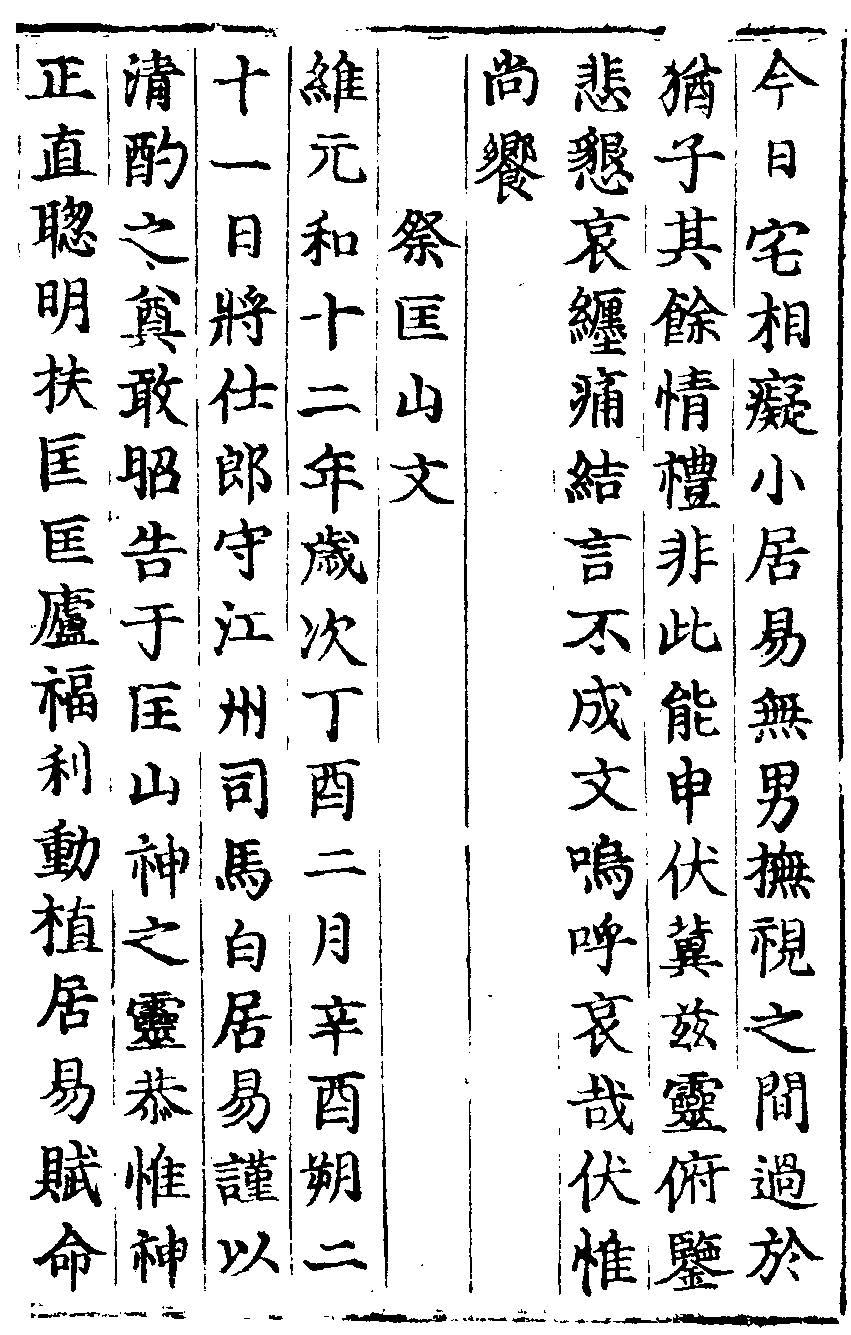 今日宅相癡小居易無男撫視之間過於
猶子其餘情禮非此能申伏冀兹靈俯鑒
悲懇哀纏痛結言不成文嗚呼哀哉伏惟
尚饗
祭匡山文
維元和十二年歲次丁酉二月辛酉朔二
十一日將仕郎守江州司馬白居易謹以
清酌之奠敢昭告于匡山神之靈恭惟神
正直聰明扶匡匡廬福利動植居易賦命